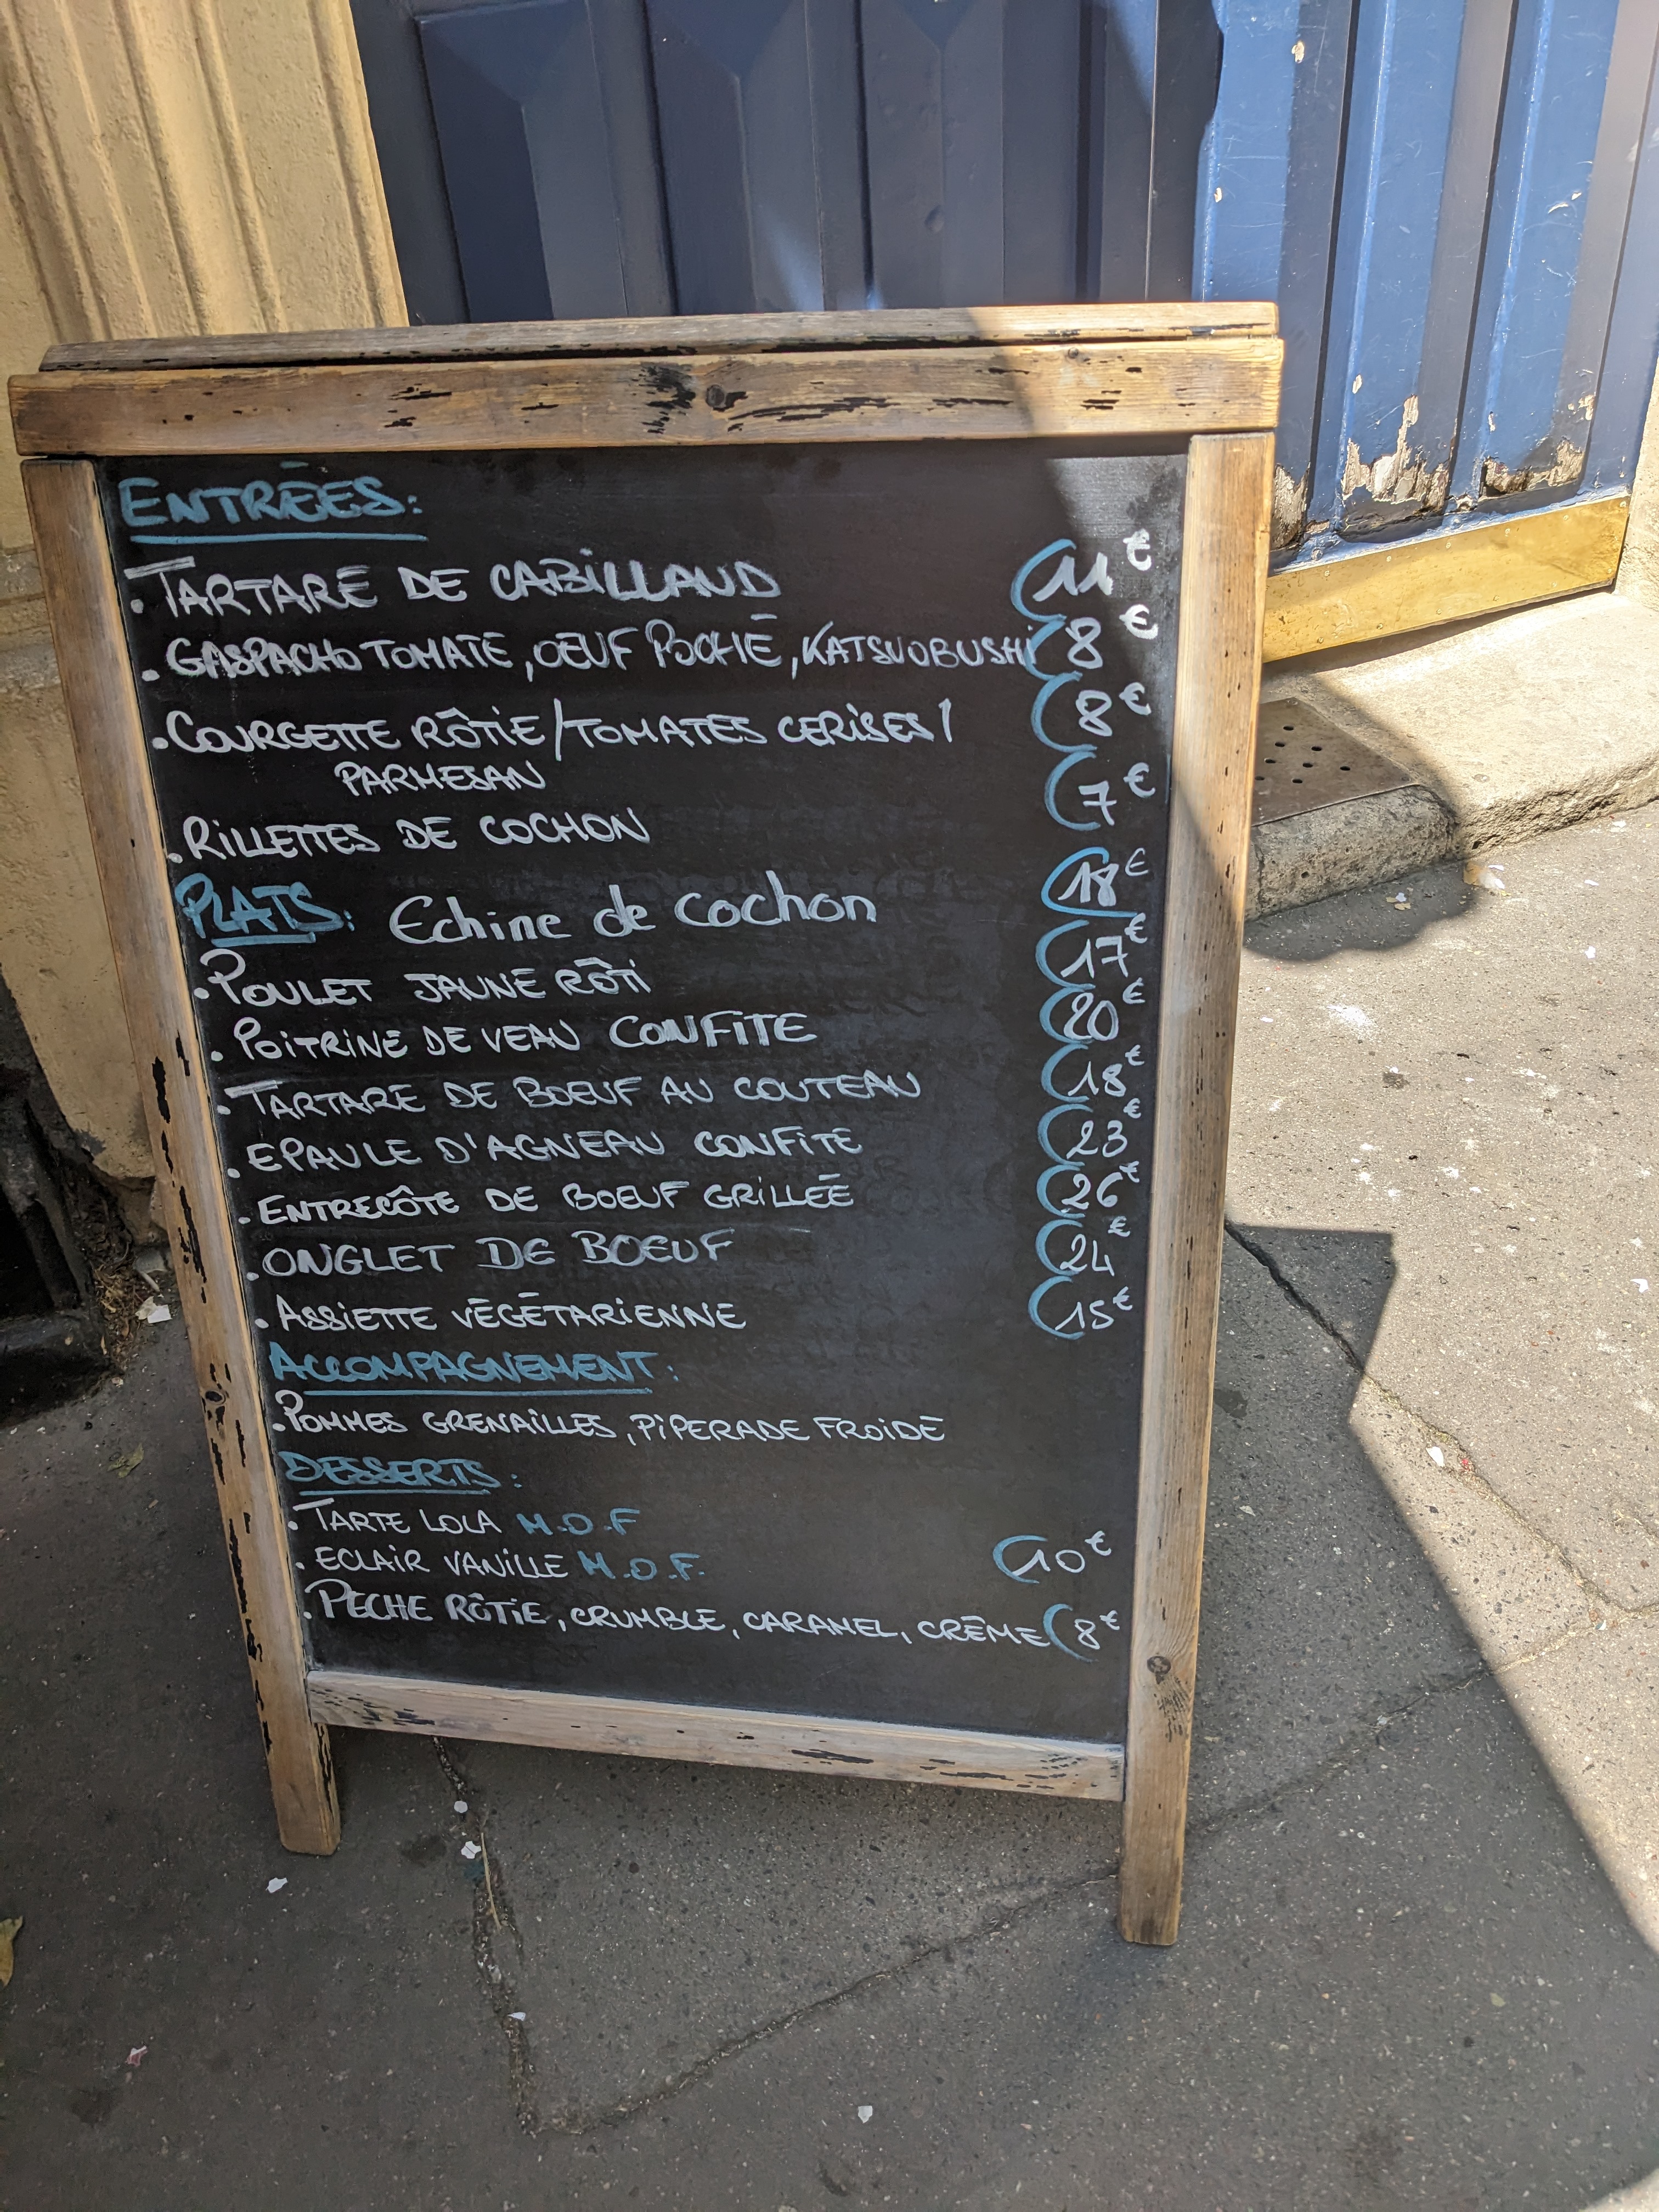 ENTRÉES:
. TARTARE DE CABILLAUD 11€
. GASPACHO TOMATE, OEUF POCHÉ, KATSUOBUSHI 8€
. COURGETTE RÔTIE/TOMATES CERISES/ 8€
PARMESAN
. RILLETTES DE COCHON 7€
PLATS: Echine de cochon 18€
. POULET JAUNE RÔTI 17€
. POITRINE DE VEAU CONFITE 20€
. TARTARE DE BOEUF AU COUTEAU 18€
. EPAULE D'AGNEAU CONFITE 23€
. ENTRECÔTE DE BOEUF GRILLÉE 26€
. ONGLET DE BOEUF 24€
. ASSIETTE VÉGÉTARIENNE 15€
ACCOMPAGNEMENT:
. POMMES GRENAILLES, PIPERADE FROIDE
DESSERTS:
. TARTE LOLA M.O.F
. ECLAIR VANILLE M.O.F. 10€
. PECHE RÔTIE, CRUMBLE, CARAMEL, CRÈME 8€